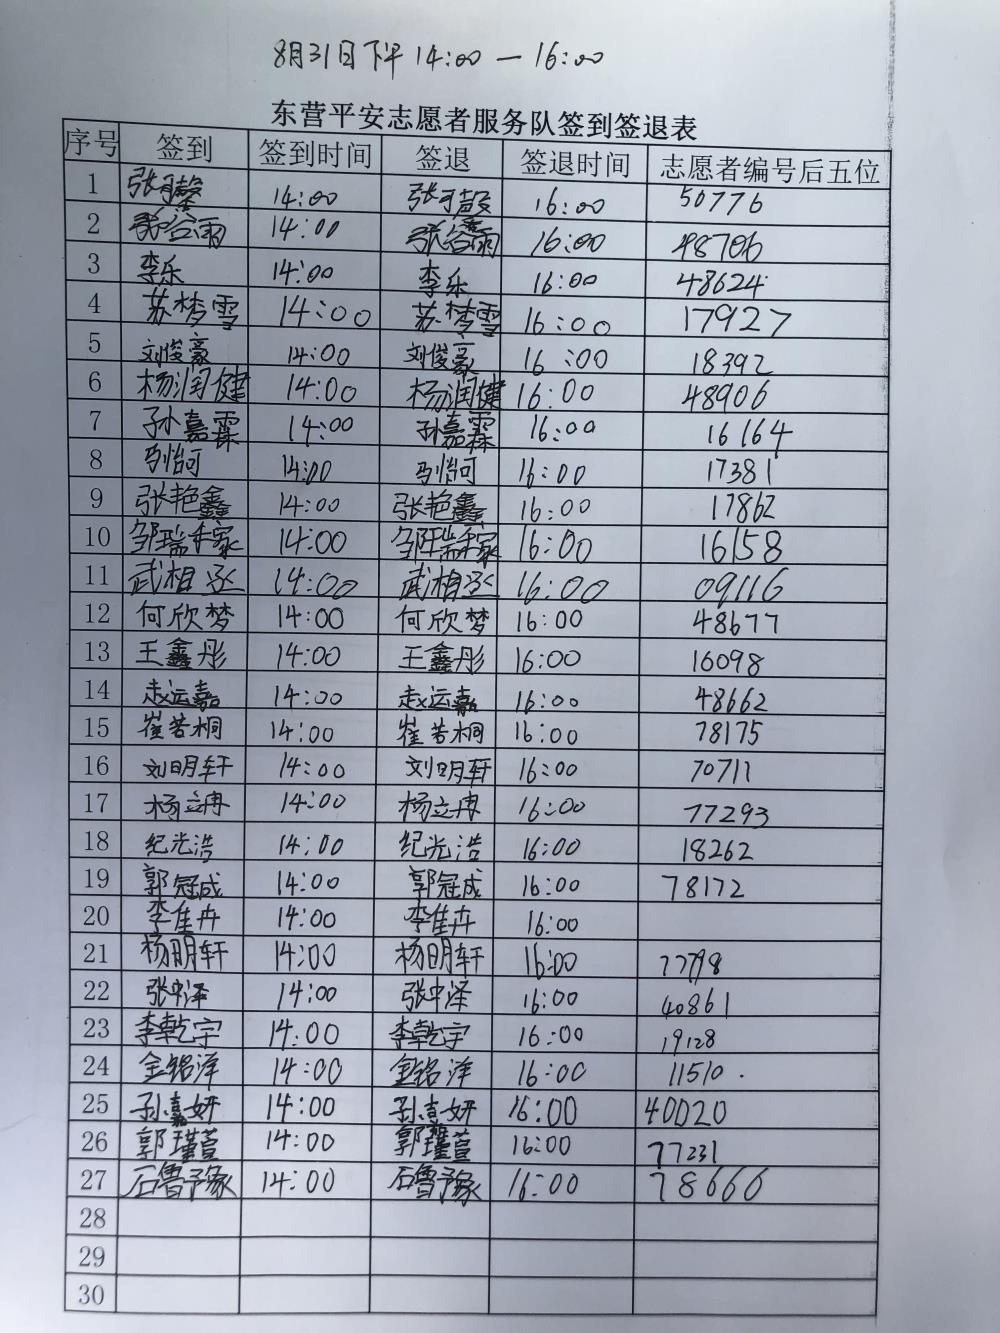 8月31日下午14:00 — 16:00
东营平安志愿者服务队签到签退表
序号 签到 签到时间 签退 签退时间 志愿者编号后五位
1 张可馨 14:00 张可馨 16:00 50776
2 张谷雨 14:00 张谷雨 16:00 48706
3 李乐 14:00 李乐 16:00 48624
4 苏梦雪 14:00 苏梦雪 16:00 17927
5 刘俊豪 14:00 刘俊豪 16:00 18392
6 杨润健 14:00 杨润健 16:00 48906
7 孙嘉霖 14:00 孙嘉霖 16:00 16164
8 14:00 16:00 17381
9 张艳鑫 14:00 张艳鑫 16:00 17862
10 14:00 16:00 16158
11 武相丞 14:00 武相丞 16:00 09116
12 何欣梦 14:00 何欣梦 16:00 48677
13 王鑫彤 14:00 王鑫彤 16:00 16098
14 赵远嘉 14:00 赵远嘉 16:00 48662
15 崔若桐 14:00 崔若桐 16:00 78175
16 刘明轩 14:00 刘明轩 16:00 70711
17 杨立冉 14:00 杨立冉 16:00 77293
18 纪光浩 14:00 纪光浩 16:00 18262
19 郭冠成 14:00 郭冠成 16:00 78172
20 李佳卉 14:00 李佳卉 16:00
21 杨明轩 14:00 杨明轩 16:00
22 张中泽 14:00 张中泽 16:00 40861
23 李乾宇 14:00 李乾宇 16:00 19128
24 金铭洋 14:00 金铭洋 16:00 11510
25 孙嘉妍 14:00 孙嘉妍 16:00 40020
26 郭瑾萱 14:00 郭瑾萱 16:00 77231
27 石鲁予豪 14:00 石鲁予豪 16:00 78666
28
29
30